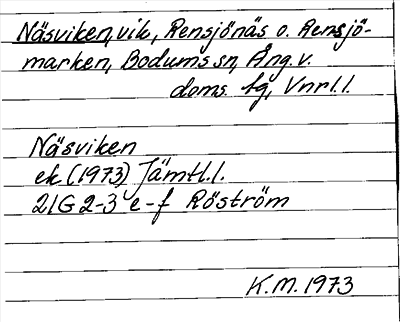 Näsviken, vik, Rensjönäs o. Rensjö-
marken, Bodums sn, Ång. v.
doms. lg, Vnrl. l.
Näsviken
ek (1973) Jämtl. l.
21G 2-3 e-f Röström
K.M. 1973